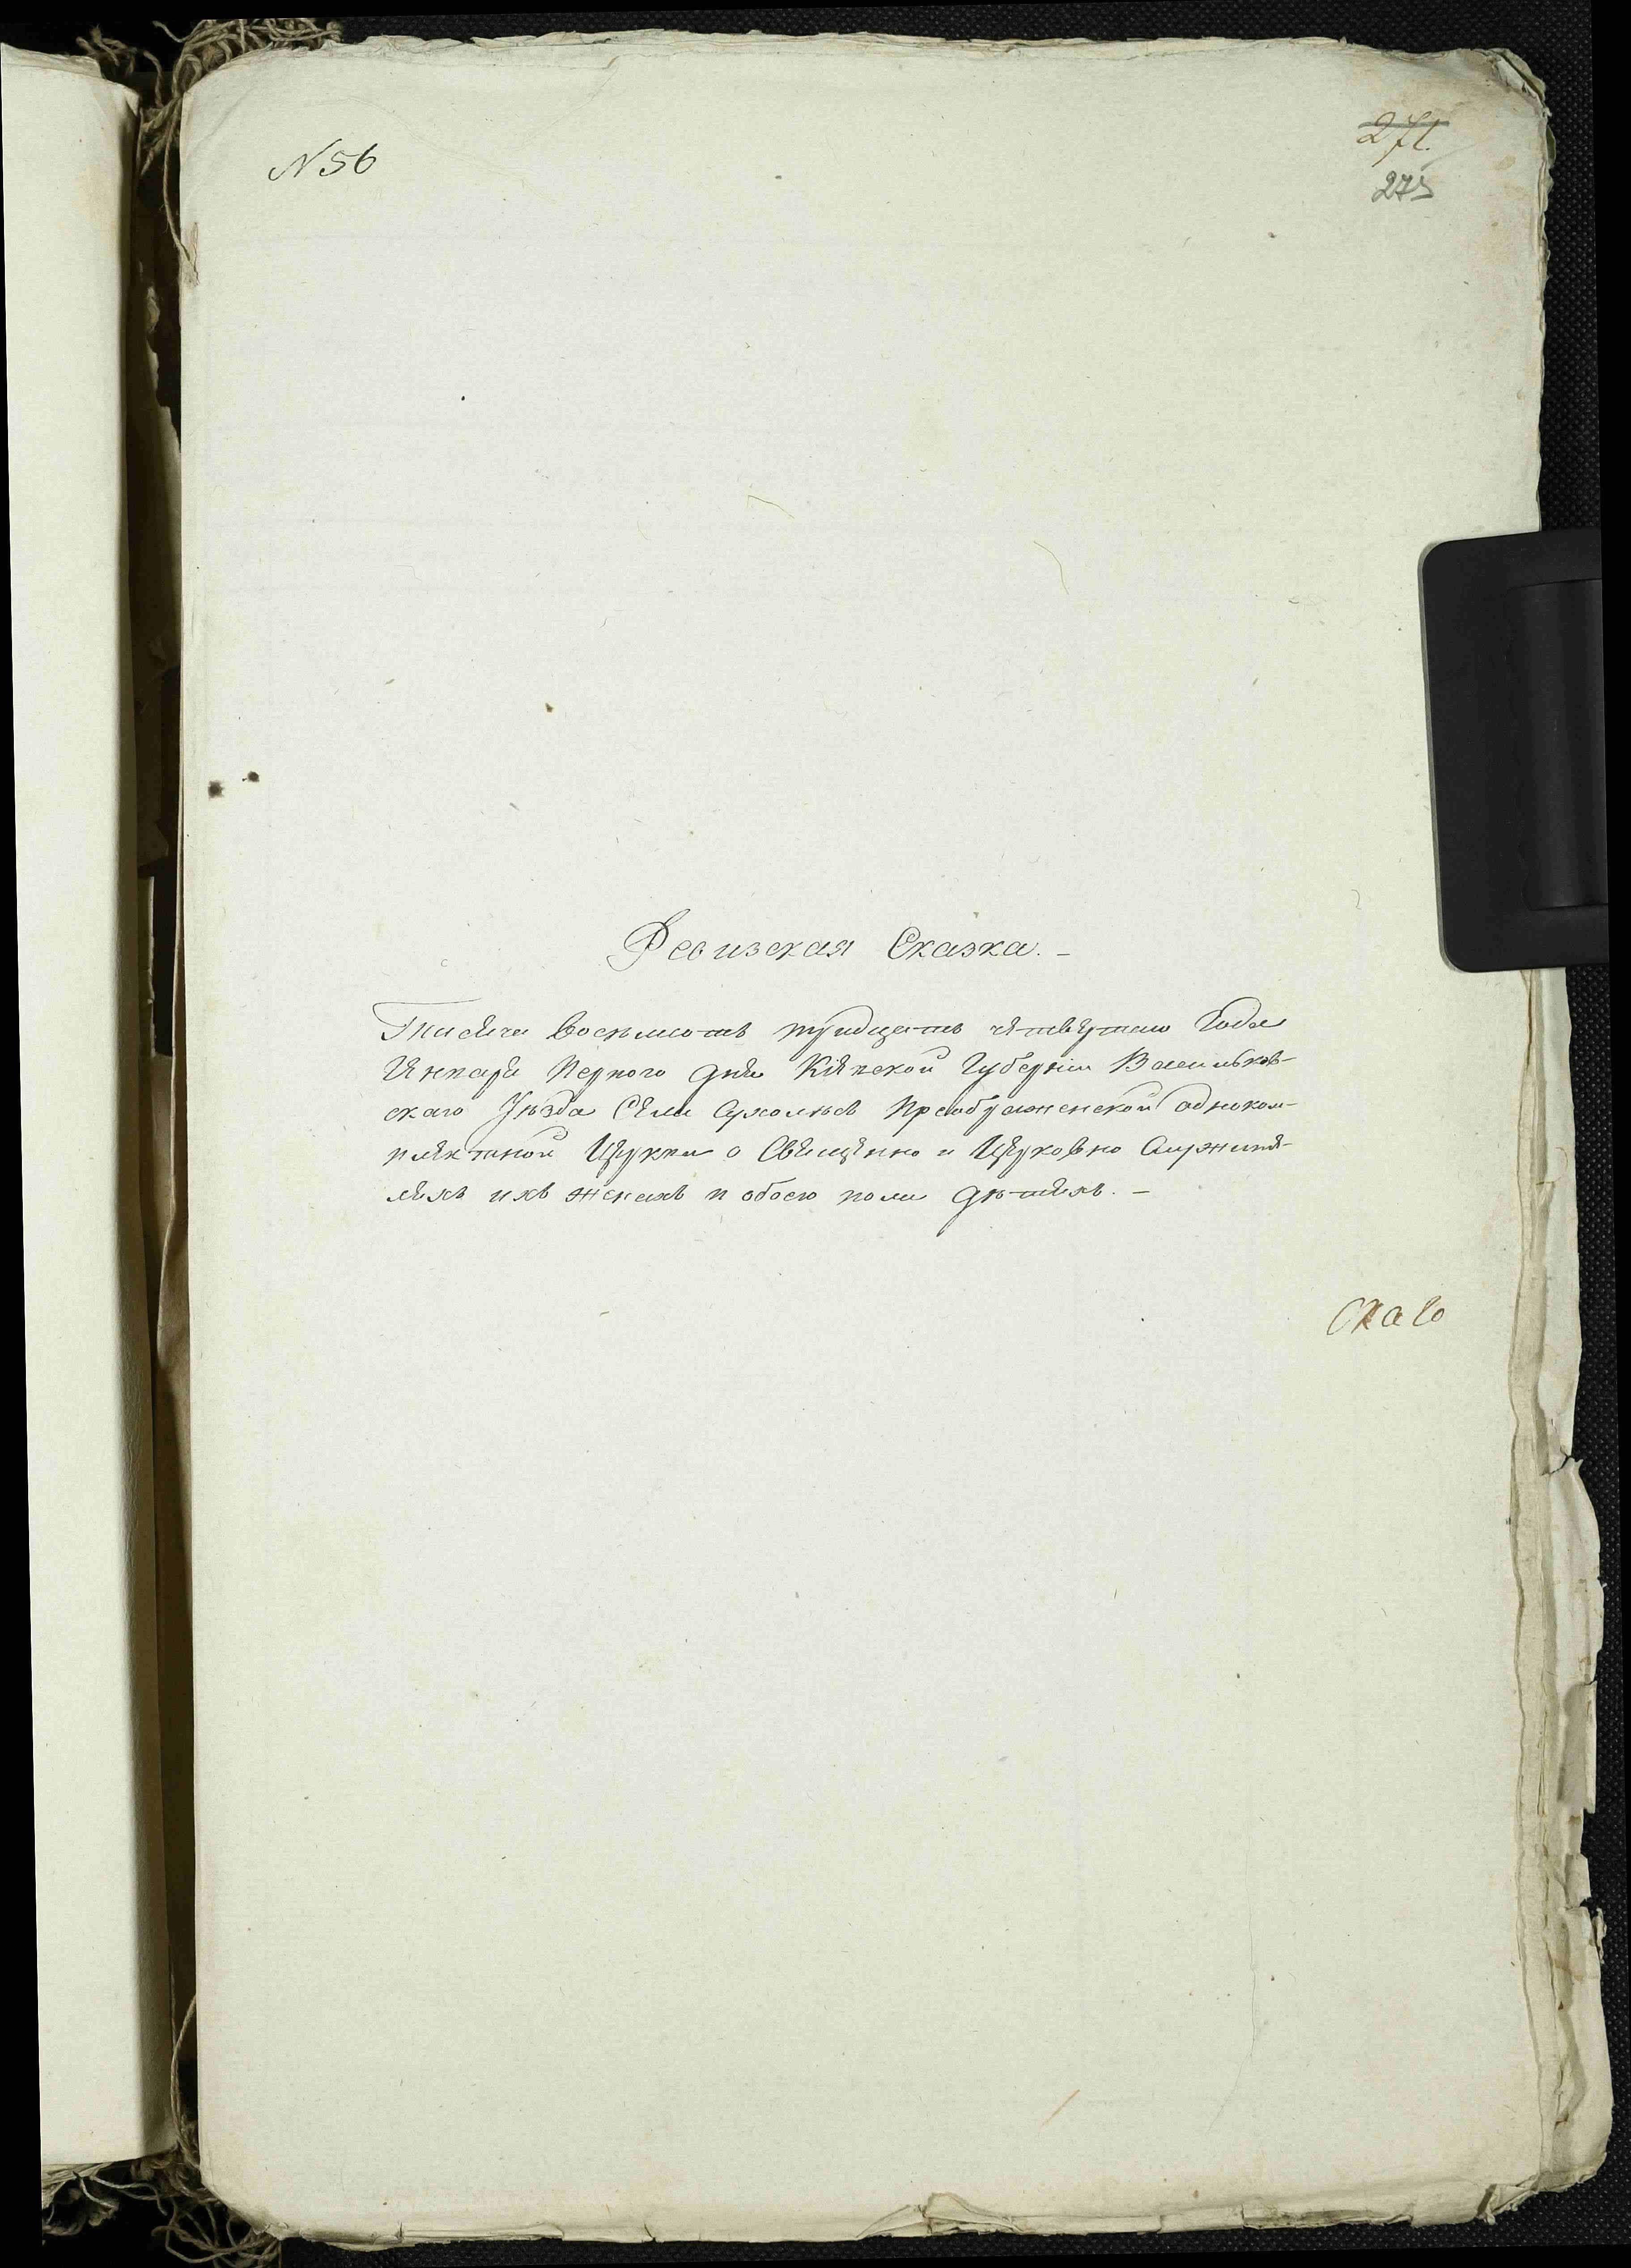 N 56
271.
275
Ревизская Сказка. –
Тисяча восемъсотъ тридцать четвертаго Года
Января Первого дня Кіевской Губерніи Васильков-
скаго Уѣзда Села Преображенской одноком-
плектной Церкви о Священно и Церковно Служите-
ляхъ ихъ женахъ и обоего пола дѣтяхъ. –
скаго